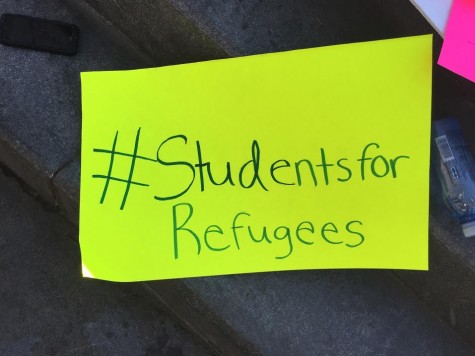 #Studentsfor
Refugees